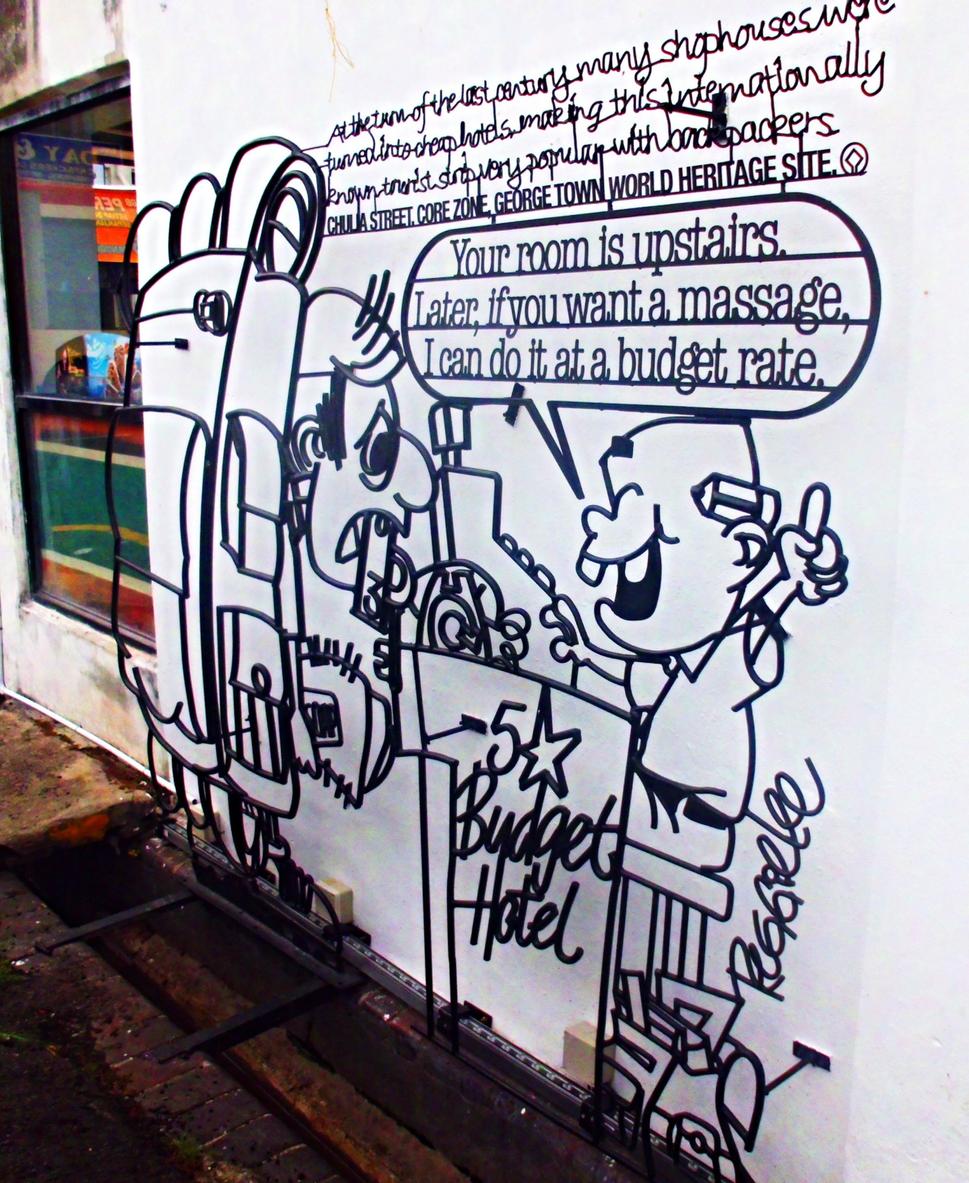 At the turn of the last century many shophouses were
turned into cheap hotels, making this internationally
known tourist strip very popular with backpackers.
CHULIA STREET. CORE ZONE, GEORGE TOWN WORLD HERITAGE SITE.
Your room is upstairs.
Later, if you want a massage,
I can do it at a budget rate.
5
Budget
Hotel
REGGIE LEE